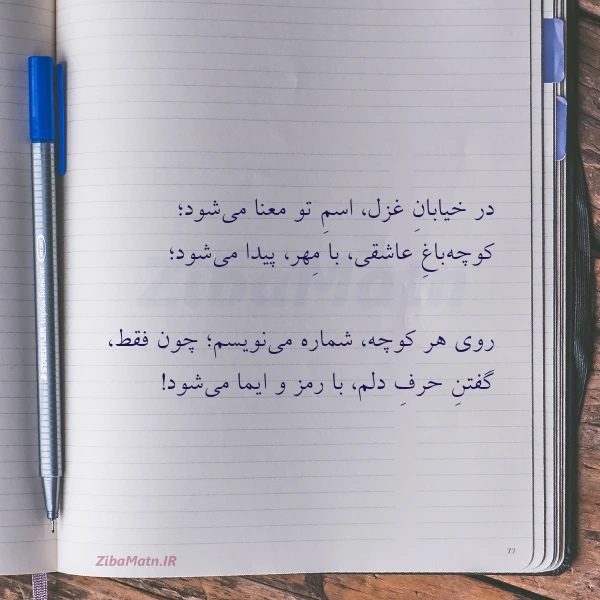 در خیابانِ غزل، اسمِ تو معنا می‌شود؛
کوچه‌باغِ عاشقی، با مِهر، پیدا می‌شود؛
روی هر کوچه، شماره می‌نویسم؛ چون فقط،
گفتنِ حرفِ دلم، با رمز و ایما می‌شود!
ZibaMatn.IR